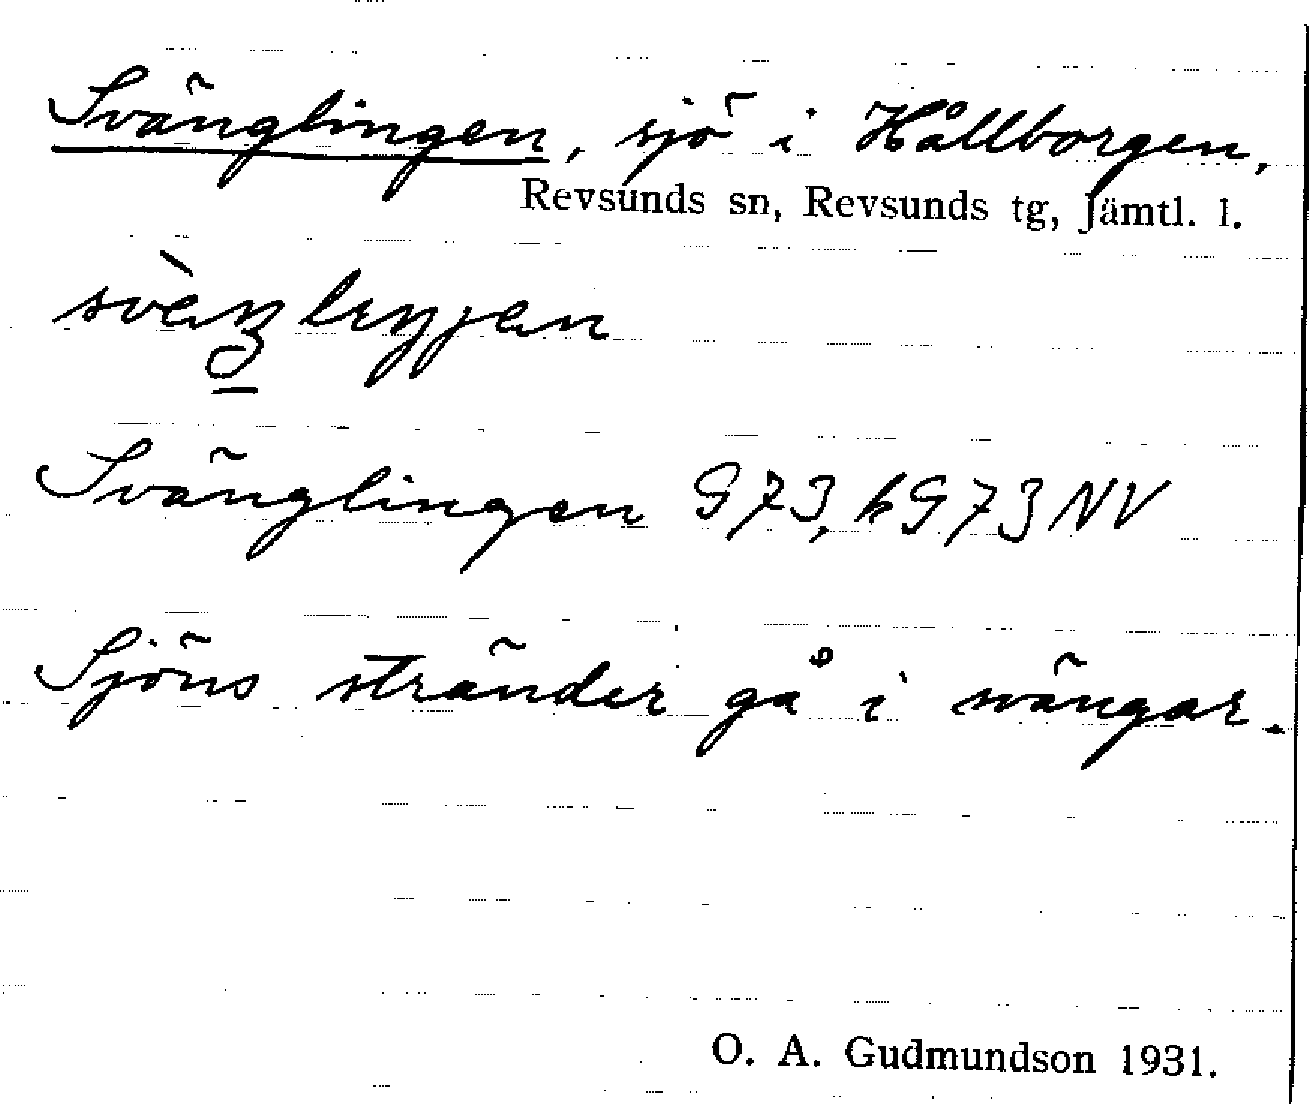 Svänglingen, sjö i Hållborgen,
Revsunds sn, Revsunds tg, Jämtl. l.
Svänglingen G73, kG73NV
Sjöns stränder gå i svängar.
O. A. Gudmundson 1931.